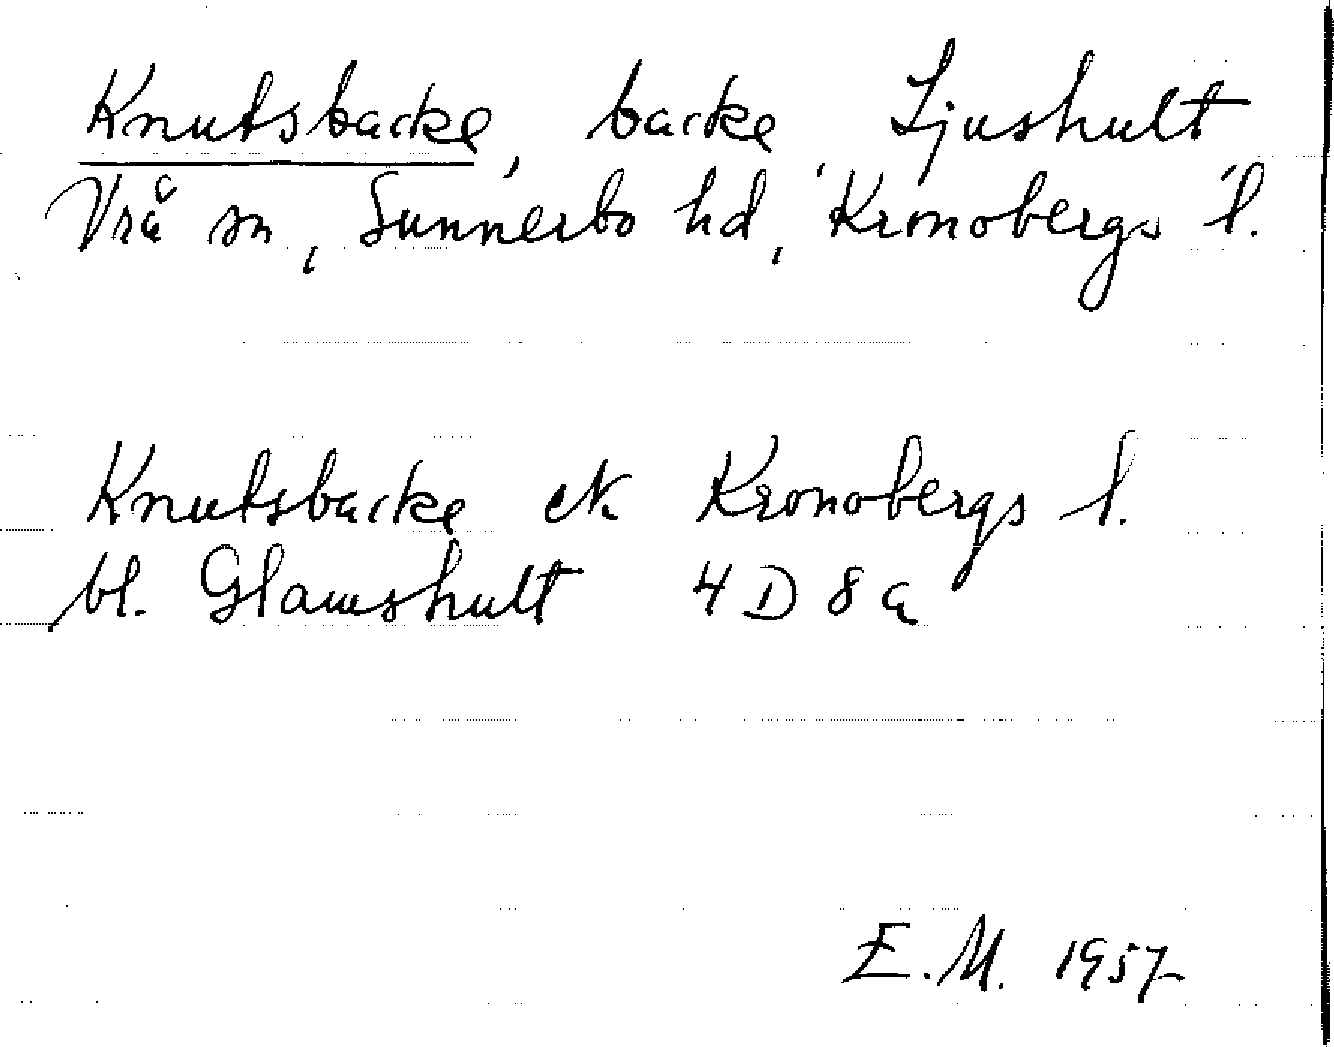 Knutsbacke, backe, Ljushult,
Vrå sn, Sunnerbo hd, Kronobergs l.
Knutsbacke ek Kronobergs l.
bl. Glamshult 4D8a
E.M. 1957